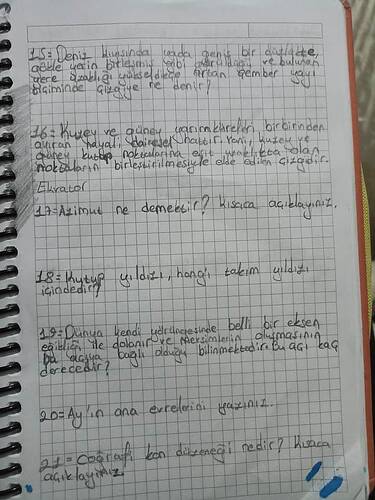 15= Deniz kıyısında yada geniş bir düzlükte,
gökle yerin birleşmiş gibi göründüğü ve bulunan
yere uzaklığı yükseldikçe artan çember yayı
biçiminde çizgiye ne denir?
16= Kuzey ve güney yarımküreleri birbirinden
ayıran hayali dairesel hattır. Yani, kuzey ve
güney kutup noktalarına eşit uzaklıkta olan
noktaların birleştirilmesiyle elde edilen çizgidir.
Ekvator
17= Azimut ne demektir? Kısaca açıklayınız.
18= Kutup yıldızı, hangi takım yıldızı
içindedir?
19= Dünya kendi yörüngesinde belli bir eksen
eğikliği ile dolanır ve mevsimlerin oluşmasının
bu açıya bağlı olduğu bilinmektedir. Bu açı kaç
derecedir?
20= Ay'ın ana evrelerini yazınız.
21= Coğrafi kon düzeneği nedir? Kısaca
açıklayınız